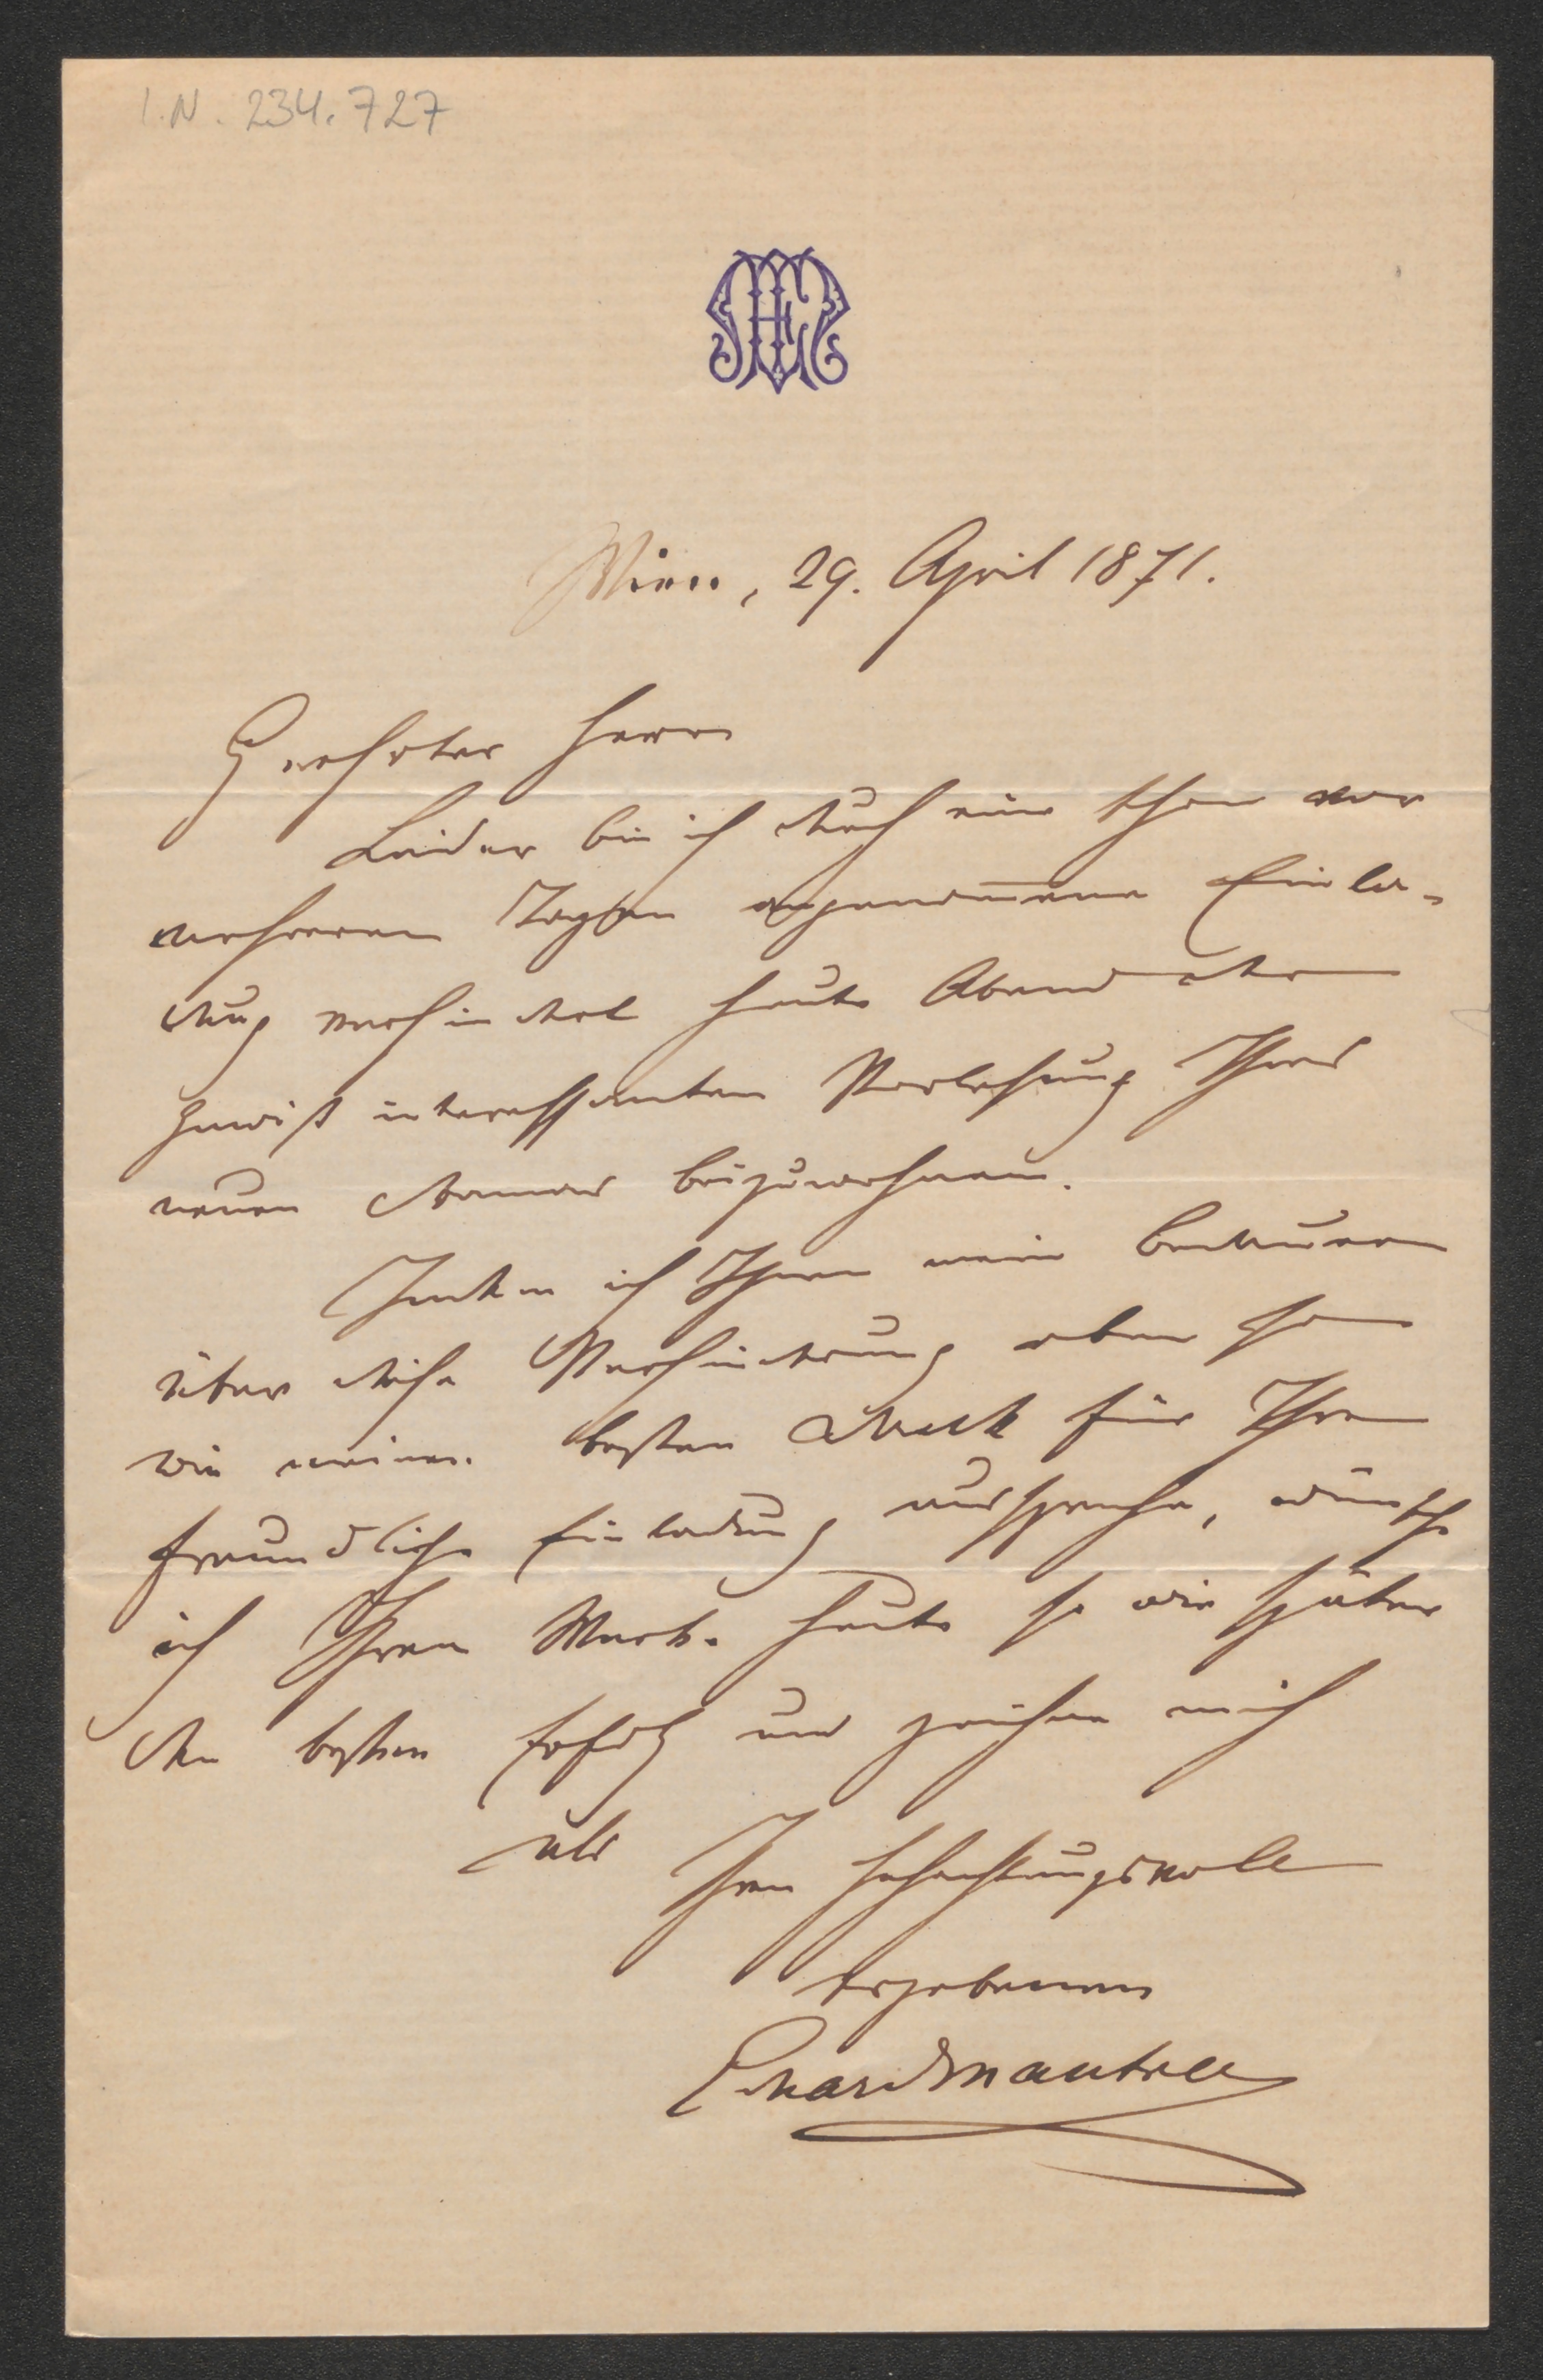 I.N. 234.727
Wien, 29. April 1871.
Geehrter Herr
Leider bin ich durch eine schon vor
mehreren Tagen angenom̅ene Einla-
dung verhindert heute Abend der
gewiß interessanten Vorlesung Ihres
neuen Dramas beizuwohnen.
Indem ich Ihnen mein Bedauern
über diese Verhinderung eben so
wie meinen besten Dank für Ihre
freundliche Einladung ausspreche, wünsche
ich Ihrem Werke heute so wie später
den besten Erfolg und zeichne mich
als Ihren hochachtungsvoll
Ergebenen